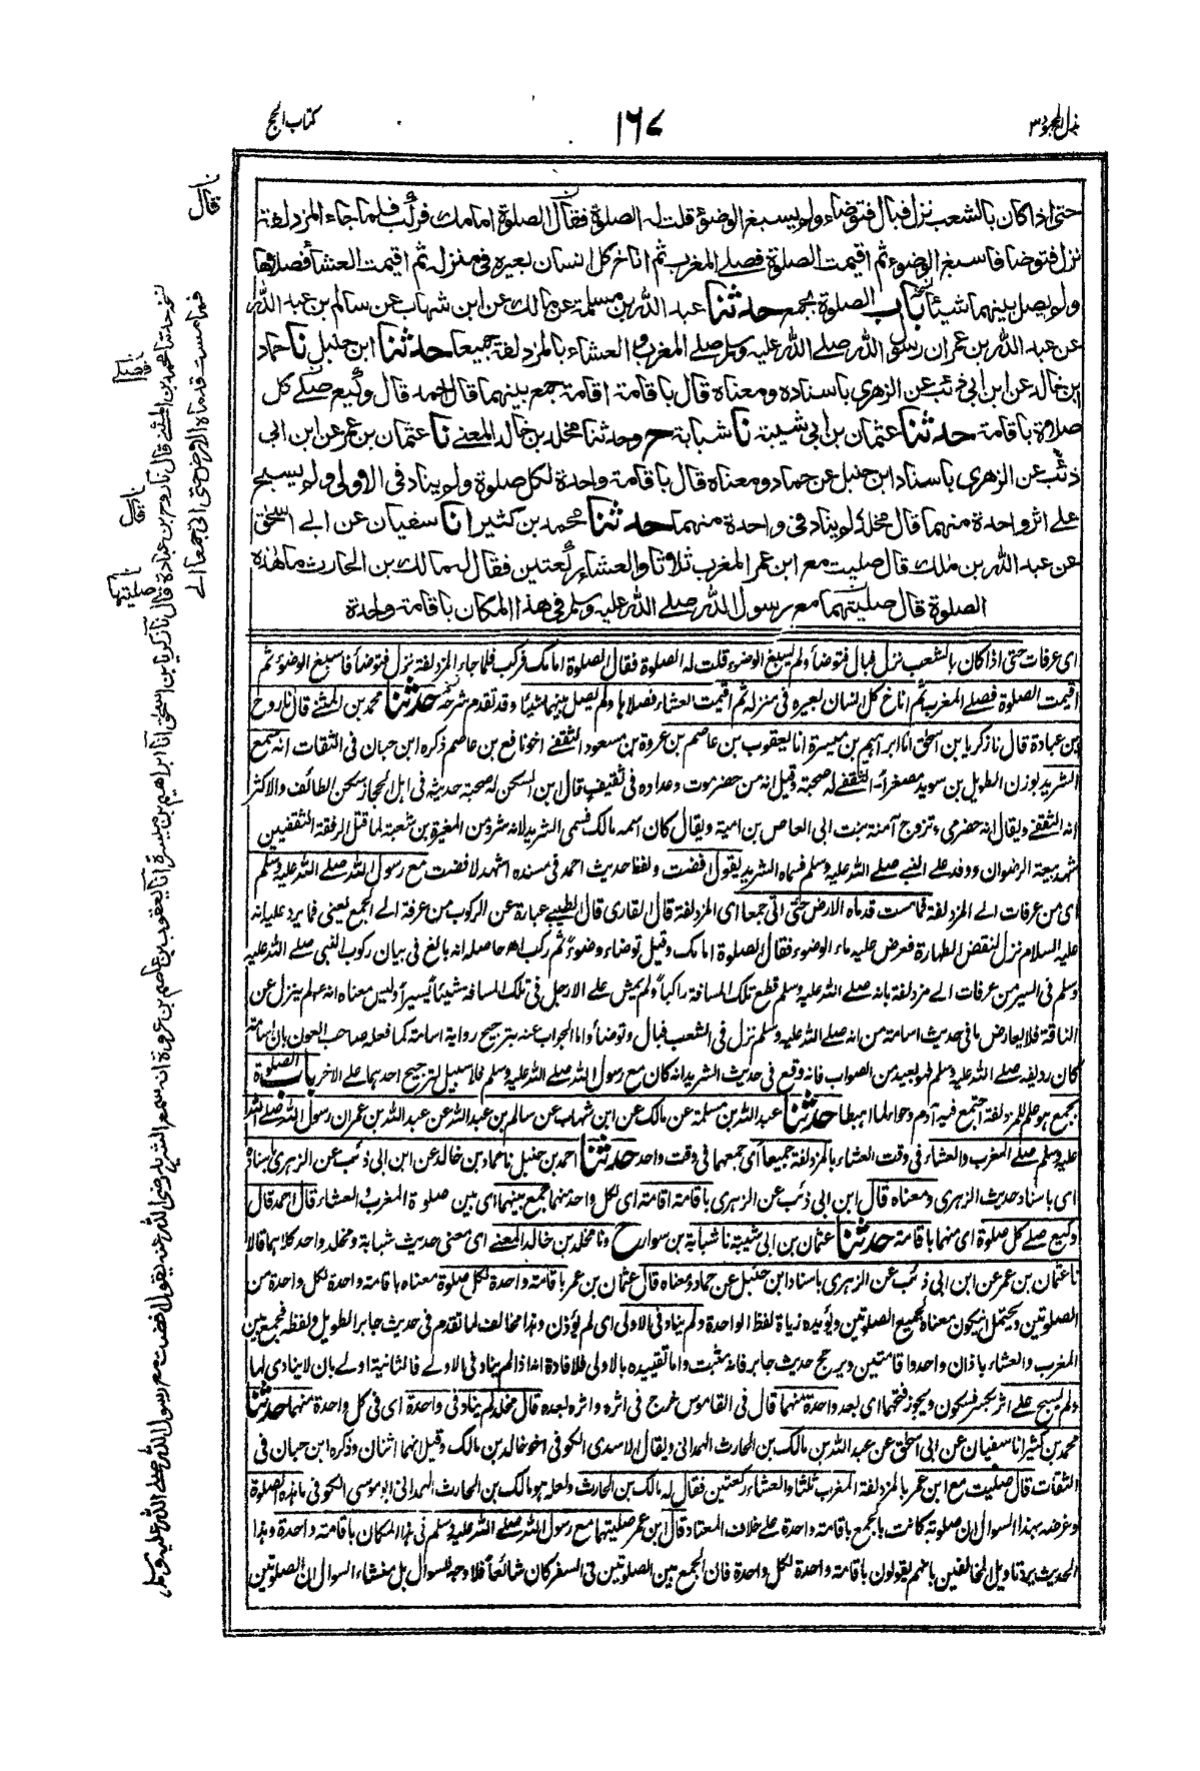 بذل المجهود ٣
١٦٧
كتاب الحج
حتى اذا كان بالشعب نزل فبال فتوضأ ولم يسبغ الوضوء قلت له الصلوة فقال الصلوة امامك فركب فلما جاء المزدلفة
نزل فتوضأ فاسبغ الوضوء ثم اقيمت الصلوة فصلے المغرب ثم اناخ كل انسان بعيره فى منزله ثم اقيمت العشاء فصلاها
ولم يصل بينهما شيئا باب الصلوة بجمع حدثنا عبد الله بن مسلمة عن مالك عن ابن شهاب عن سالم بن عبد الله
عن عبد الله بن عمر ان رسول الله صلے الله عليه وسلم صلے المغرب والعشاء بالمزدلفة جميعا حدثنا ابن حنبل نا حماد
ابن خالد عن ابن ابى ذئب عن الزهرى باسناده ومعناه قال باقامة اقامة جمع بينهما قال احمد قال وكيع صلے كل
صلاة باقامة حدثنا عثمان بن ابى شيبة نا شبابة ح وحدثنا مخلد بن خالد المعنے نا عثمان بن عمر عن ابن ابى
ذئب عن الزهرى باسناد ابن حنبل عن حماد ومعناه قال باقامة واحدة لكل صلوة ولم يناد فى الاولى ولم يسبح
على اثر واحدة منهما قال مخلد لم يناد فى واحدة منهما حدثنا محمد بن كثير انا سفيان عن ابے اسحق
عن عبد الله بن ملك قال صليت مع ابن عمر المغرب ثلاثا والعشاء ركعتين فقال له مالك بن الحارث ما هذه
الصلوة قال صليتهما مع رسول الله صلے الله عليه وسلم فى هذا المكان باقامة واحدة
اى عرفات حتى اذا كان بالشعب نزل فبال فتوضأ ولم يسبغ الوضوء قلت له الصلوة فقال الصلوة امامك فركب فلما جاء المزدلفة نزل فتوضأ فاسبغ الوضوء ثم
اقيمت الصلوة فصلے المغرب ثم اناخ كل انسان بعيره فى منزله ثم اقيمت العشاء فصلاها ولم يصل بينهما شيئا وقد تقدم شرحه حدثنا محمد بن المثنے قال نا روح
بن عبادة قال نا زكريا بن اسحق انا ابراهيم بن ميسرة انا يعقوب بن عاصم بن عروة بن مسعود الثقفے اخو نافع بن عاصم ذكره ابن حبان فى الثقات انه سمع
الشريد بوزن الطويل بن سويد مصغرا الثقفے له صحبة وقيل انه من حضرموت وعداده فى ثقيف قال ابن السكن له صحبة حديثه فى اهل الحجاز سكن الطائف والاكثر
انه الثقفے ويقال انه حضرمى وتزوج آمنة بنت ابى العاص بن امية ويقال كان اسمه مالك فسمى الشريد لانه شرد من المغيرة بن شعبة لما قتل الرفقة الثقفيين
شهد بيعة الرضوان ووفد على النبے صلے الله عليه وسلم فسماه الشريد يقول افضت ولفظ حديث احمد فى مسنده اشهد لافضت مع رسول الله صلے الله عليه وسلم
اى من عرفات الے المزدلفة فما مست قدماه الارض حتى اتى جمعا اى المزدلفة قال القارى قال الطيبے عبارة عن الركوب من عرفة الے الجمع يعنى فما يرد عليه انه
عليه السلام نزل لنقض الطهارة فعرض عليه ماء الوضوء فقال الصلوة امامك وقيل توضاء وضوءً ثم ركب اھ حاصله انه بالغ فى بيان ركوب النبى صلے الله عليه
وسلم فى السير من عرفات الے مزدلفة بانه صلے الله عليه وسلم قطع تلك المسافة راكبا ولم يمش على الارجل فى تلك المسافة شيئا يسيرا وليس معناه انه لم ينزل عن
الناقة فلا يعارض ما فى حديث اسامة من انه صلے الله عليه وسلم نزل فى الشعب فبال وتوضأ واما الجواب عنه بترجيح رواية اسامة كما فعله صاحب العون بان اسامة
كان رديفه صلے الله عليه وسلم فهو بعيد من الصواب فانه وقع فى حديث الشريد انه كان مع رسول الله صلے الله عليه وسلم فلا سبيل لترجيح احدهما على الاخر باب الصلوة
بجمع هو علم للمزدلفة اجتمع فيه آدم وحواء لما اهبطا حدثنا عبد الله بن مسلمة عن مالك عن ابن شهاب عن سالم بن عبد الله عن عبد الله بن عمر ان رسول الله صلے الله
عليه وسلم صلے المغرب والعشاء فى وقت العشاء بالمزدلفة جميعا اى جمعهما فى وقت واحد حدثنا احمد بن حنبل نا حماد بن خالد عن ابن ابى ذئب عن الزهرى باسناده
اى باسناد حديث الزهرى ومعناه قال ابن ابى ذئب عن الزهرى باقامة اقامة اى لكل واحد منهما جمع بينهما اى بين صلوة المغرب والعشاء قال احمد قال
وكيع صلے كل صلوة اى منهما باقامة حدثنا عثمان بن ابى شيبة نا شبابة بن سوار ح ونا مخلد بن خالد المعنے اى معنى حديث شبابة ومخلد واحد كلاهما قالا
نا عثمان بن عمر عن ابن ابى ذئب عن الزهرى باسناد ابن حنبل عن حماد ومعناه قال عثمان بن عمر باقامة واحدة لكل صلوة معناه باقامة واحدة لكل واحدة من
الصلوتين ويحتمل ان يكون معناه لجميع الصلوتين ويؤيده زيادة لفظ الواحدة ولم يناد فى الاولى اى لم يؤذن وهذا مخالف لما تقدم فى حديث جابر الطويل ولفظه فجمع بين
المغرب والعشاء باذان واحد واقامتين ويرجح حديث جابر فانه مثبت واما تقييده بالاولى فلافادة انه اذا لم يناد فى الاولے فالثانية اولے بان لا ينادى لها
ولم يسبح على اثر بكسر فسكون ويجوز فتحهما اى بعد واحدة منهما قال فى القاموس خرج فى اثره واثره بعده قال مخلد لم يناد فى واحدة اى فى كل واحدة منهما حدثنا
محمد بن كثير انا سفيان عن ابى اسحق عن عبد الله بن مالك بن الحارث الهمدانى ويقال الاسدى الكوفى اخو خالد بن مالك وقيل انهما اثنان وذكره ابن حبان فى
الثقات قال صليت مع ابن عمر بالمزدلفة المغرب ثلثا والعشاء ركعتين فقال له مالك بن الحارث ولعله هو مالك بن الحارث الهمدانى ابو موسى الكوفى ما هذه الصلوة
وغرضه بهذا السوال ان صلوته كانت بالجمع باقامة واحدة على خلاف المعتاد قال ابن عمر صليتهما مع رسول الله صلے الله عليه وسلم فى هذا المكان باقامة واحدة وهذا
الحديث يرد تاويل المخالفين بانهم يقولون باقامة واحدة لكل واحدة فان الجمع بين الصلوتين فى السفر كان شائعا فلا وجه للسوال بل منشاء السوال ان الصلوتين
قال
فما مست قدماه الارض حتى اتى جمعا
حدثنا محمد بن المثنے قال نا روح بن عبادة قال نا زكريا بن اسحق انا ابراهيم بن ميسرة انا يعقوب بن عاصم بن عروة انه سمع الشريد رضى الله عنه يقول افضت مع رسول الله صلے الله عليه وسلم
قال
صليتها